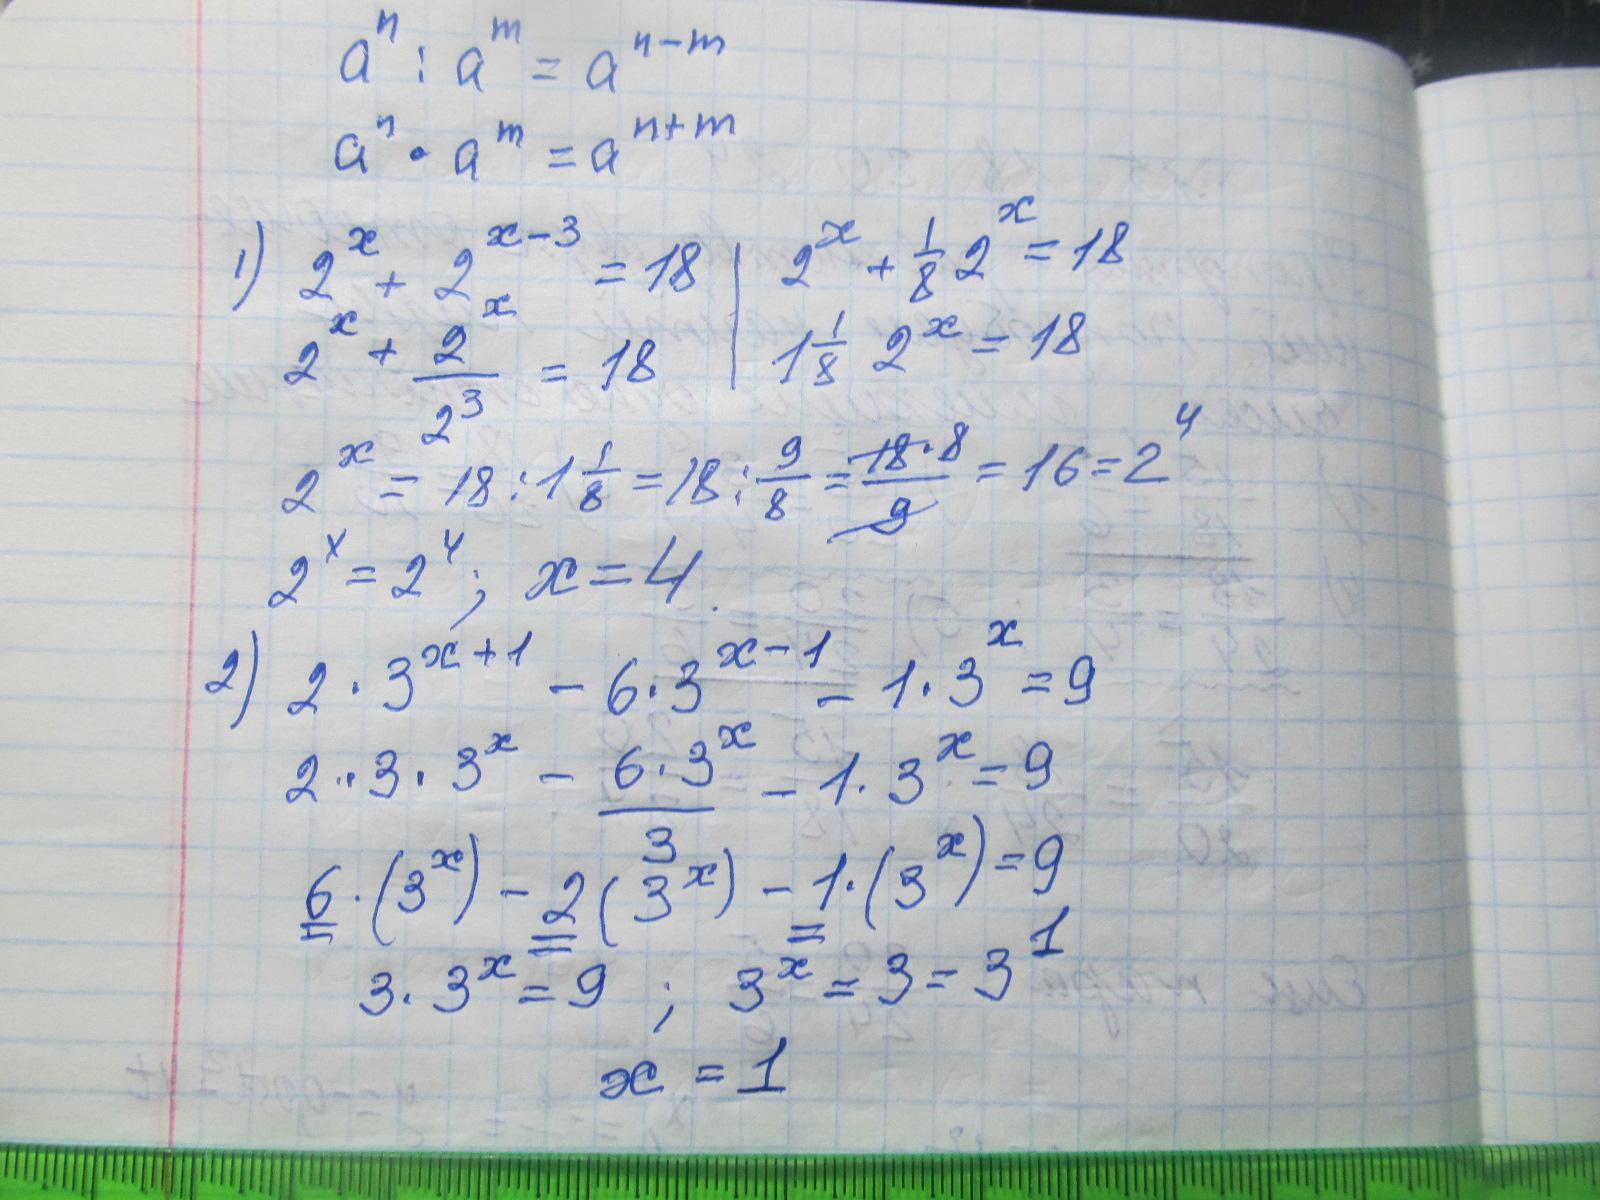 aⁿ : aᵐ = aⁿ⁻ᵐ
aⁿ · aᵐ = aⁿ⁺ᵐ
1) 2^x + 2^(x-3) = 18 | 2^x + 1/8 2^x = 18
2^x + 2^x/2^3 = 18 | 1 1/8 2^x = 18
2^x = 18 : 1 1/8 = 18 : 9/8 = 18·8/9 = 16 = 2^4
2^x = 2^4; x = 4.
2) 2 · 3^(x+1) - 6 · 3^(x-1) - 1 · 3^x = 9
2 · 3 · 3^x - 6 · 3^x/3 - 1 · 3^x = 9
6 · (3^x) - 2 (3^x) - 1 · (3^x) = 9
3 · 3^x = 9 ; 3^x = 3 = 3^1
x = 1